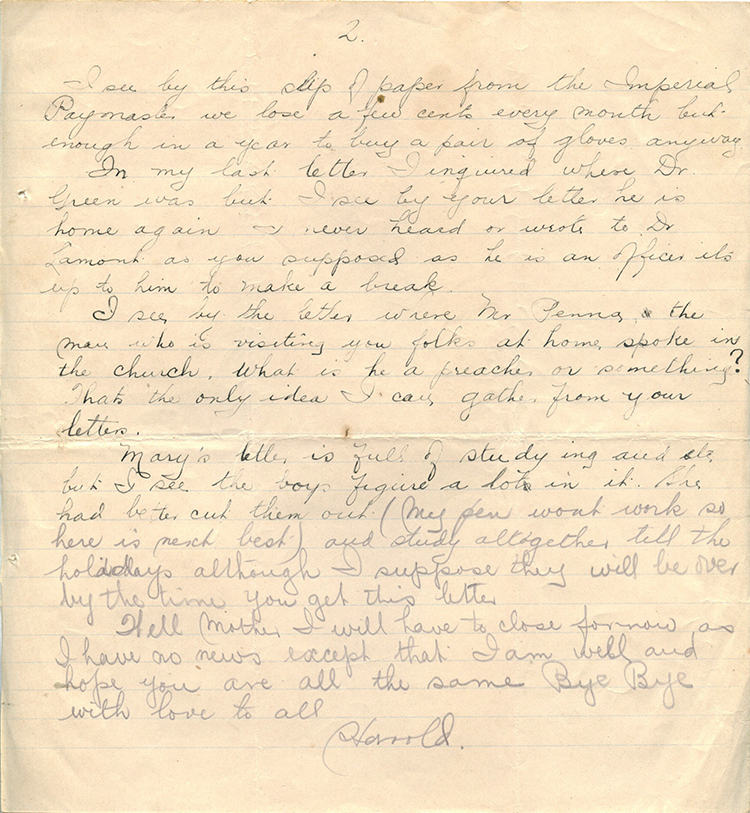 2.
I see by this slip of paper from the Imperial
Paymaster we lose a few cents every month but
enough in a year to buy a pair of gloves anyway
In my last letter I inquired where Dr.
Green was but I see by your letter he is
home again I never heard or wrote to Dr
Lamont as you supposed as he is an officer its
up to him to make a break.
I see by the letter where Mr Penna, the
man who is visiting you folks at home, spoke in
the church. What is he a preacher or something?
Thats the only idea I can gather from your
letters.
Mary's letter is full of studying and etc
but I see the boys figure a lot in it. She
had better cut them out (My pen wont work so
here is next best) and study altogether till the
holidays although I suppose they will be over
by the time you get this letter
Well Mother I will have to close for now as
I have no news except that I am well and
hope you are all the same Bye Bye
with love to all
Harrold.